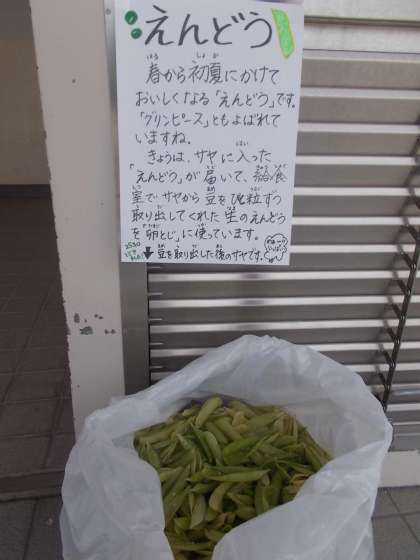 えんどう
春から初夏にかけて
おいしくなる「えんどう」です。
「グリンピース」ともよばれて
いますね。
きょうは、サヤに入った
「えんどう」が届いて、給食
室でサヤから豆を1粒ずつ
取り出してくれた生のえんどう
を「卵とじ」に使っています。
↓豆を取り出した後のサヤです。